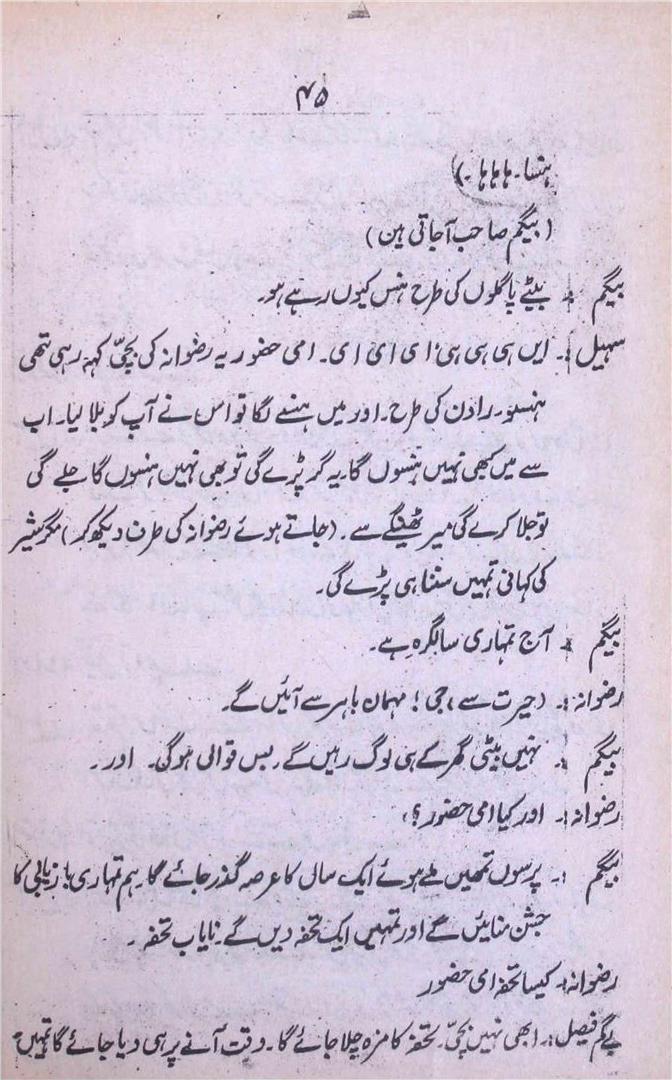 ۴۵
ہنسا۔ ہا ہا ہا۔)
(بیگم صاحب آجاتی ہین)
بیگم :۔ بیٹے پاگلوں کی طرح ہنس کیوں رہے ہو۔
سہیل :۔ ایں سی سی سی ای ای ای۔ امی حضور یہ رضوانہ کی بچیّ کہہ رہی تھی
ہنسو۔ رادن کی طرح۔ اور میں ہنسنے لگا تو اس نے آپ کو بلا لیا۔ اب
سے میں کبھی نہیں ہنسوں گا۔ یہ گر پڑے گی تو بھی نہیں ہنسوں گا جلے گی
تو جلا کرے گی میر ٹھینگے سے۔ (جاتے ہوئے رضوانہ کی طرف دیکھ کر) مگر شیر
کی کہانی تمہیں سننا ہی پڑے گی۔
بیگم :۔ آج تمہاری سالگرہ ہے۔
رضوانہ :۔ (حیرت سے) جی! مہمان باہر سے آئیں گے۔
بیگم :۔ نہیں بیٹی گھر کے ہی لوگ رہیں گے۔ بس قوالی ہوگی۔ اور۔
رضوانہ :۔ اور کیا امی حضور؟
بیگم :۔ پرسوں تمھیں ملے ہوئے ایک سال کا عرصہ گذر جائے گا۔ ہم تمہاری بازیابی کا
جشن منائیں گے اور تمہیں ایک تحفہ دیں گے۔ نایاب تحفہ۔
رضوانہ :۔ کیسا تحفہ امی حضور
بیگم فیصل :۔ ابھی نہیں بچیّ۔ تحفہ کا مزہ چلا جائے گا۔ وقت آنے پر ہی دیا جائے گا تمہیں